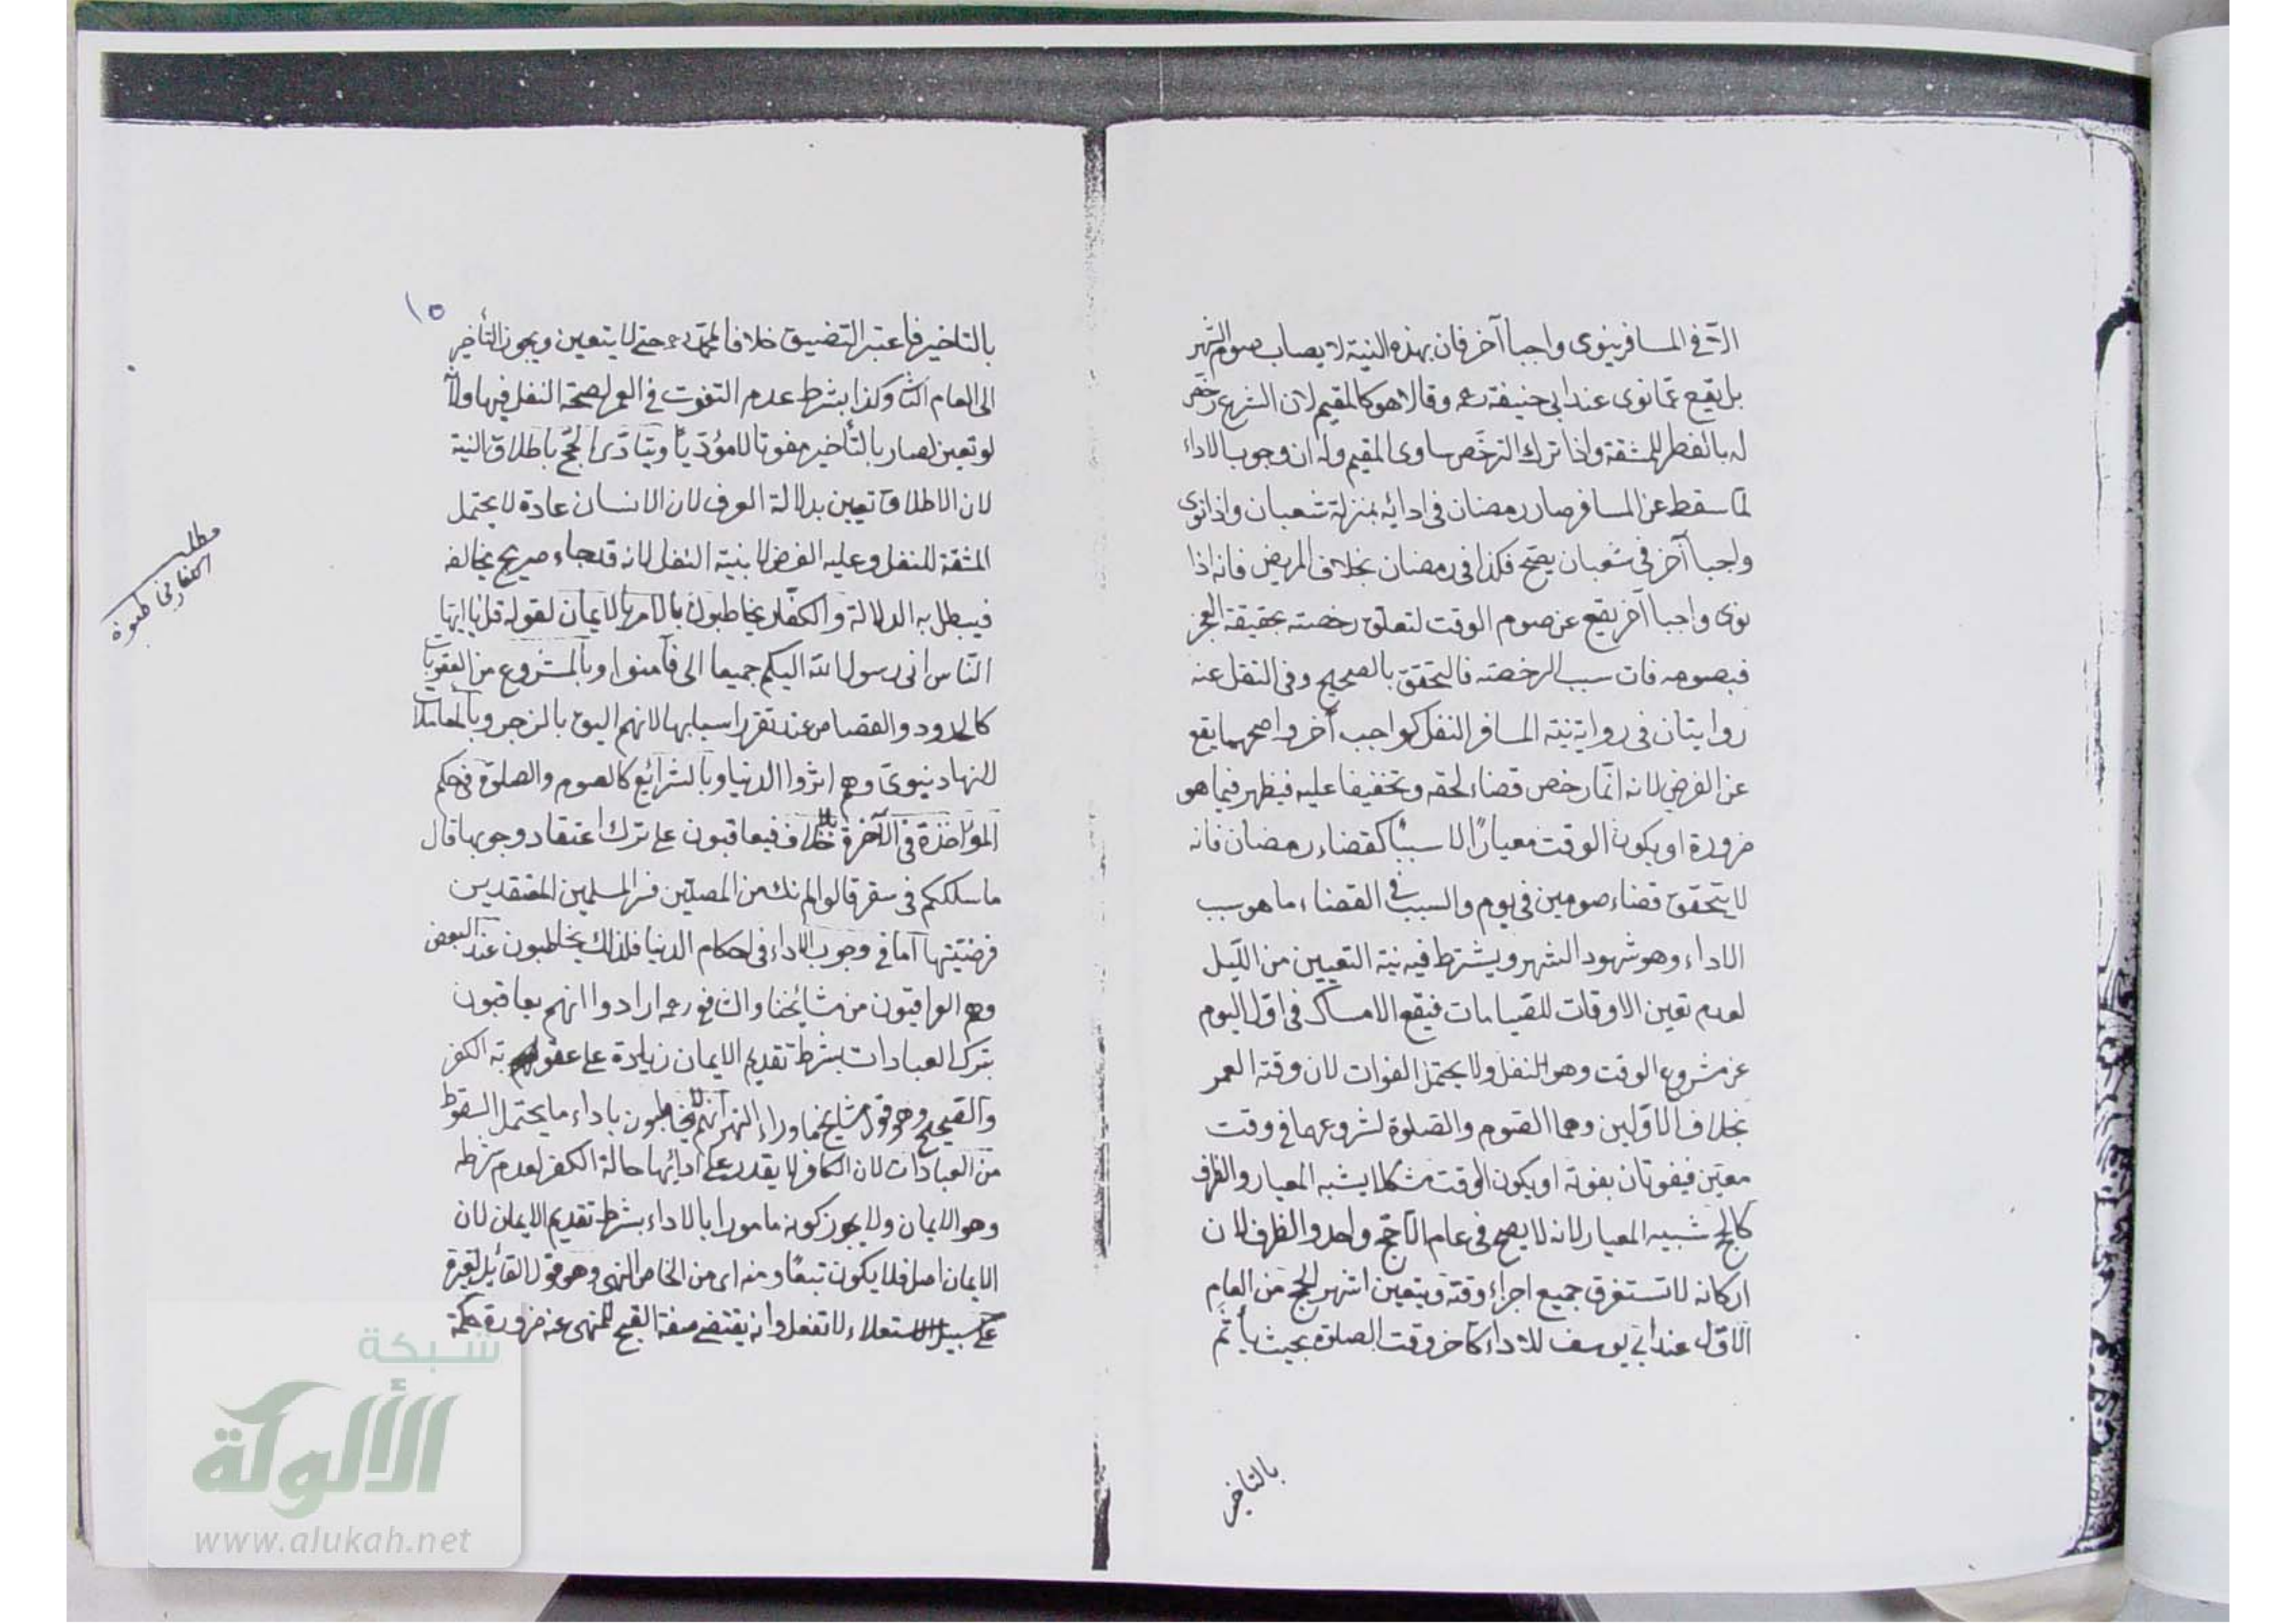 الا في المسافر ينوى واجبا آخر فان بهذه النية لا يصاب صوم الشهر
بل يقع عما نوى عند ابي حنيفة رحمه وقالا هو كالمقيم لان الشرع رخص
له بالفطر للمشقة واذا ترك الترخص ساوى المقيم وله ان وجوب الاداء
لما سقط عن المسافر صار رمضان في ادائه بمنزلة شعبان واذا نوى
واجبا آخر في شعبان يصح فكذا في رمضان بخلاف المريض فانه اذا
نوى واجبا آخر يقع عن صوم الوقت لتعلق رخصته بحقيقة العجز
فبصومه فات سبب الرخصة فالتحقق بالصحيح وفي النفل عنه
روايتان في رواية نية المسافر النفل كواجب آخر واصحهما يقع
عن الفرض لانه انما رخص قضاء لحقه وتخفيفا عليه فيظهر فيما هو
ضرورة او يكون الوقت معيارًا لا سببًا كقضاء رمضان فانه
لا يتحقق قضاء صومين في يوم والسبب في القضاء ما هو سبب
الاداء وهو شهود الشهر ويشترط فيه نية التعيين من الليل
لعدم تعين الاوقات للقيامات فيقع الامساك في اول اليوم
عن مشروع الوقت وهو النفل ولا يحتمل الفوات لان وقته العمر
بخلاف الاولين وهما الصوم والصلوة لشروعهما في وقت
معين فيفوتان بفوته او يكون الوقت مشكلا يشبه المعيار والظرف
كالحج شبيه المعيار لانه لا يصح في عام الا حج واحد والظرف لان
اركانه لا تستغرق جميع اجزاء وقته ويتعين اشهر الحج من العام
الاول عند ابي يوسف للاداء كآخر وقت الصلوة بحيث يأثم
بالتاخير
١٥
بالتاخير فاعتبر التضييق خلافا لمحمد رحمه حتى لا يتعين ويجوز التأخير
الى العام الثا وكذا بشرط عدم التفوت في العمر لصحة النفل فيها ولانه
لو تعين لصار بالتأخير مفوتا لا مؤديًا ويتادى الحج باطلاق النية
لان الاطلاق تعيين بدلالة العرف لان الانسان عادة لا يحتمل
المشقة للنفل وعليه الفرض لا بنية النفل لانه قد جاء صريح يخالفه
فيبطل به الدلالة والكفار يخاطبون بالامر بالايمان لقوله قل يا ايها
الناس اني رسول الله اليكم جميعا الى فآمنوا وبالمشروع من العقوبات
كالحدود والقصاص عند تقرر اسبابها لانهم اليق بالزجر وبالمعاملات
لانها دنيوى وهم اثروا الدنيا وبالشرائع كالصوم والصلوة في حكم
المؤاخذة في الآخرة بلا خلاف فيعاقبون على ترك اعتقاد وجوبها قال
ما سلككم في سقر قالوا لم نك من المصلين فسر المسلمين المعتقدين
فرضيتها اما في وجوب الاداء في احكام الدنيا فلذلك يخاطبون عند البعض
وهم العراقيون من مشايخنا والشافعي رحمه ارادوا انهم يعاقبون
بترك العبادات بشرط تقديم الايمان زيادة على عقوبة الكفر
والصحيح وهو قول مشايخ ما وراء النهر انهم لا يخاطبون باداء ما يحتمل السقوط
من العبادات لان الكافر لا يقدر على ادائها حالة الكفر لعدم شرطه
وهو الايمان ولا يجوز كونه مامورا بالاداء بشرط تقديم الايمان لان
الايمان اصل فلا يكون تبعًا ومنه اى من الخاص النهي وهو قول القائل لغيره
على سبيل الاستعلاء لا تفعل وانه يقتضي صفة القبح للمنهي عنه ضرورة حكمة
مطلب
الكفار
شبكة
الألوكة
www.alukah.net